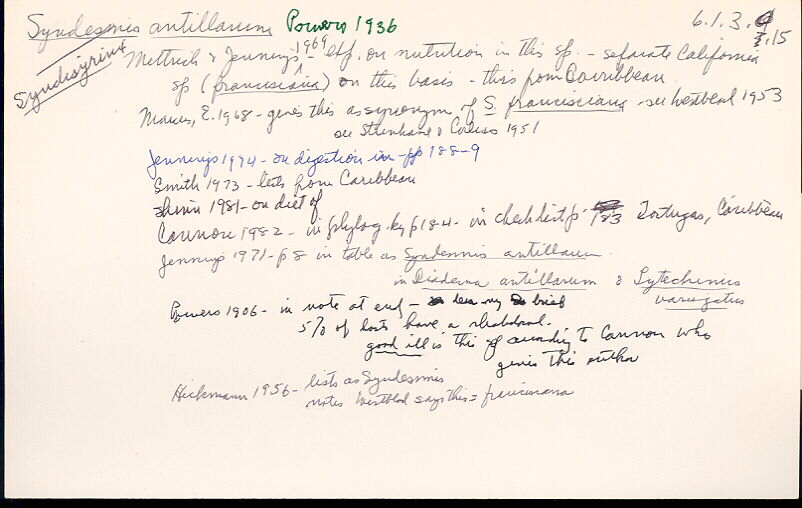 Syndesmis antillarum Powers 1936 6.1.3.
.15
Syndisyrinx
Mettrick & Jennings 1969 - esp. on nutrition in this sp. - separate California
sp (franciscana) on this basis - this from Caribbean.
Marcus, E. 1968 - gives this as synonym of S. francisciana - see Westblad 1953
see Stunkard & Corliss 1951
Jennings 1974 - on digestion in - pp 188-9
Smith 1973 - lists from Caribbean
Shinn 1981 - on diet of
Cannon 1982 - in phylog. key p 184 - in checklist p. 183 Tortugas, Caribbean
Jennings 1971 - p 8 in table as Syndesmis antillarum
in Diadema antillarum & Lytechinus
variegatus
Powers 1906 - in note at end - brief
5% of hosts have a rhabdocoel.
good ill is this of according to Cannon who
gives this author
Hickmann 1956 - lists as Syndesmis
notes Westblad says this = franciscana